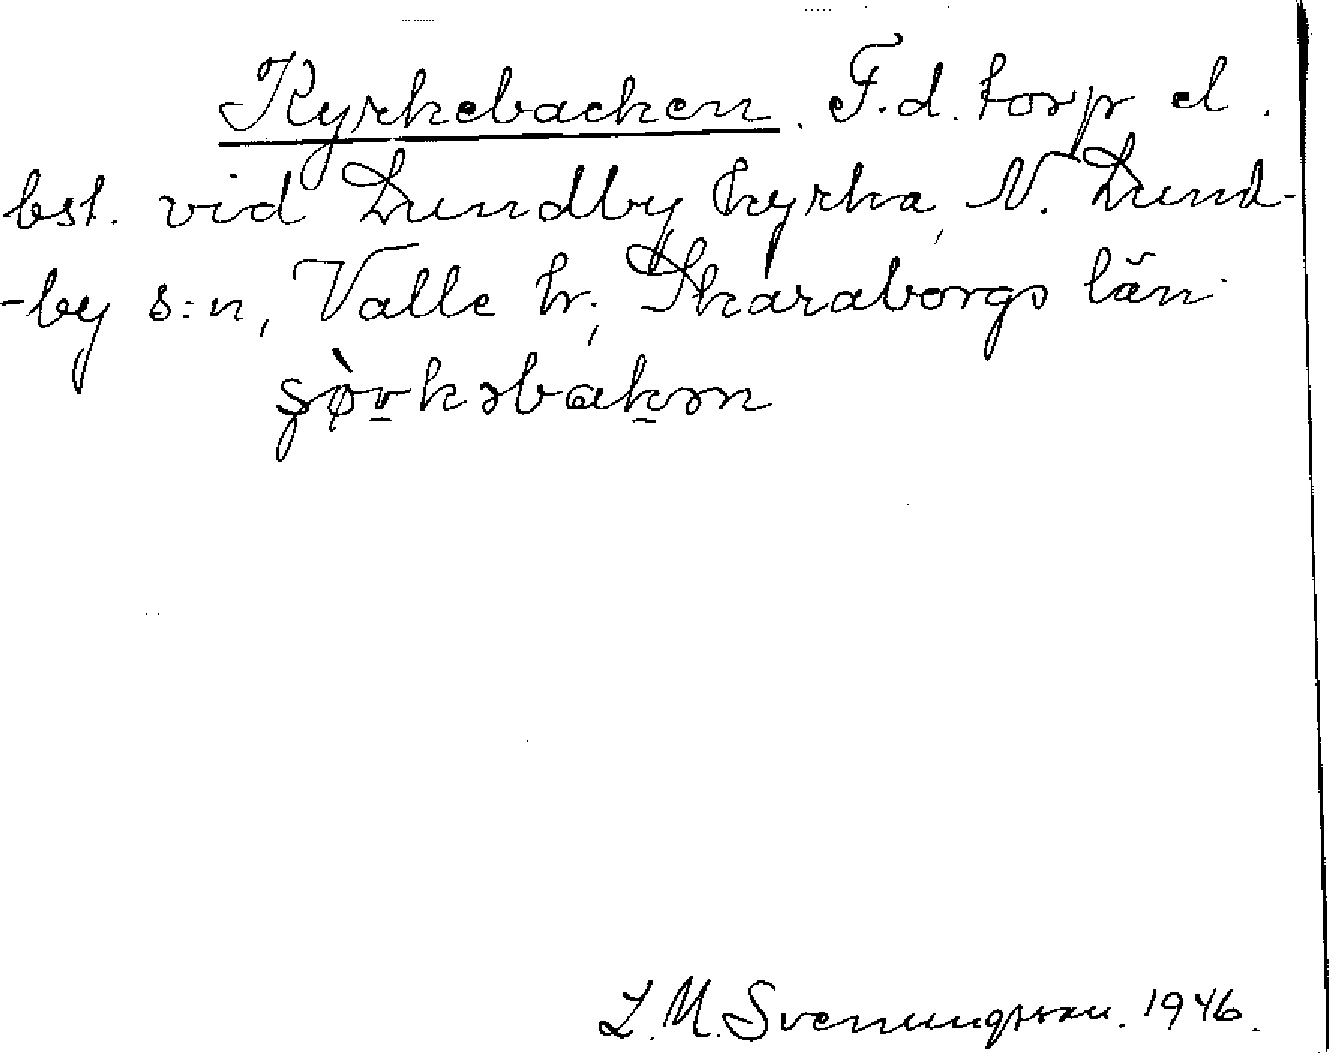 Kyrkebacken. F.d. torp el.
bst. vid Lundby kyrka, N. Lund-
-by s:n, Valle hr, Skaraborgs län.
L.M. Svenungsson. 1946.